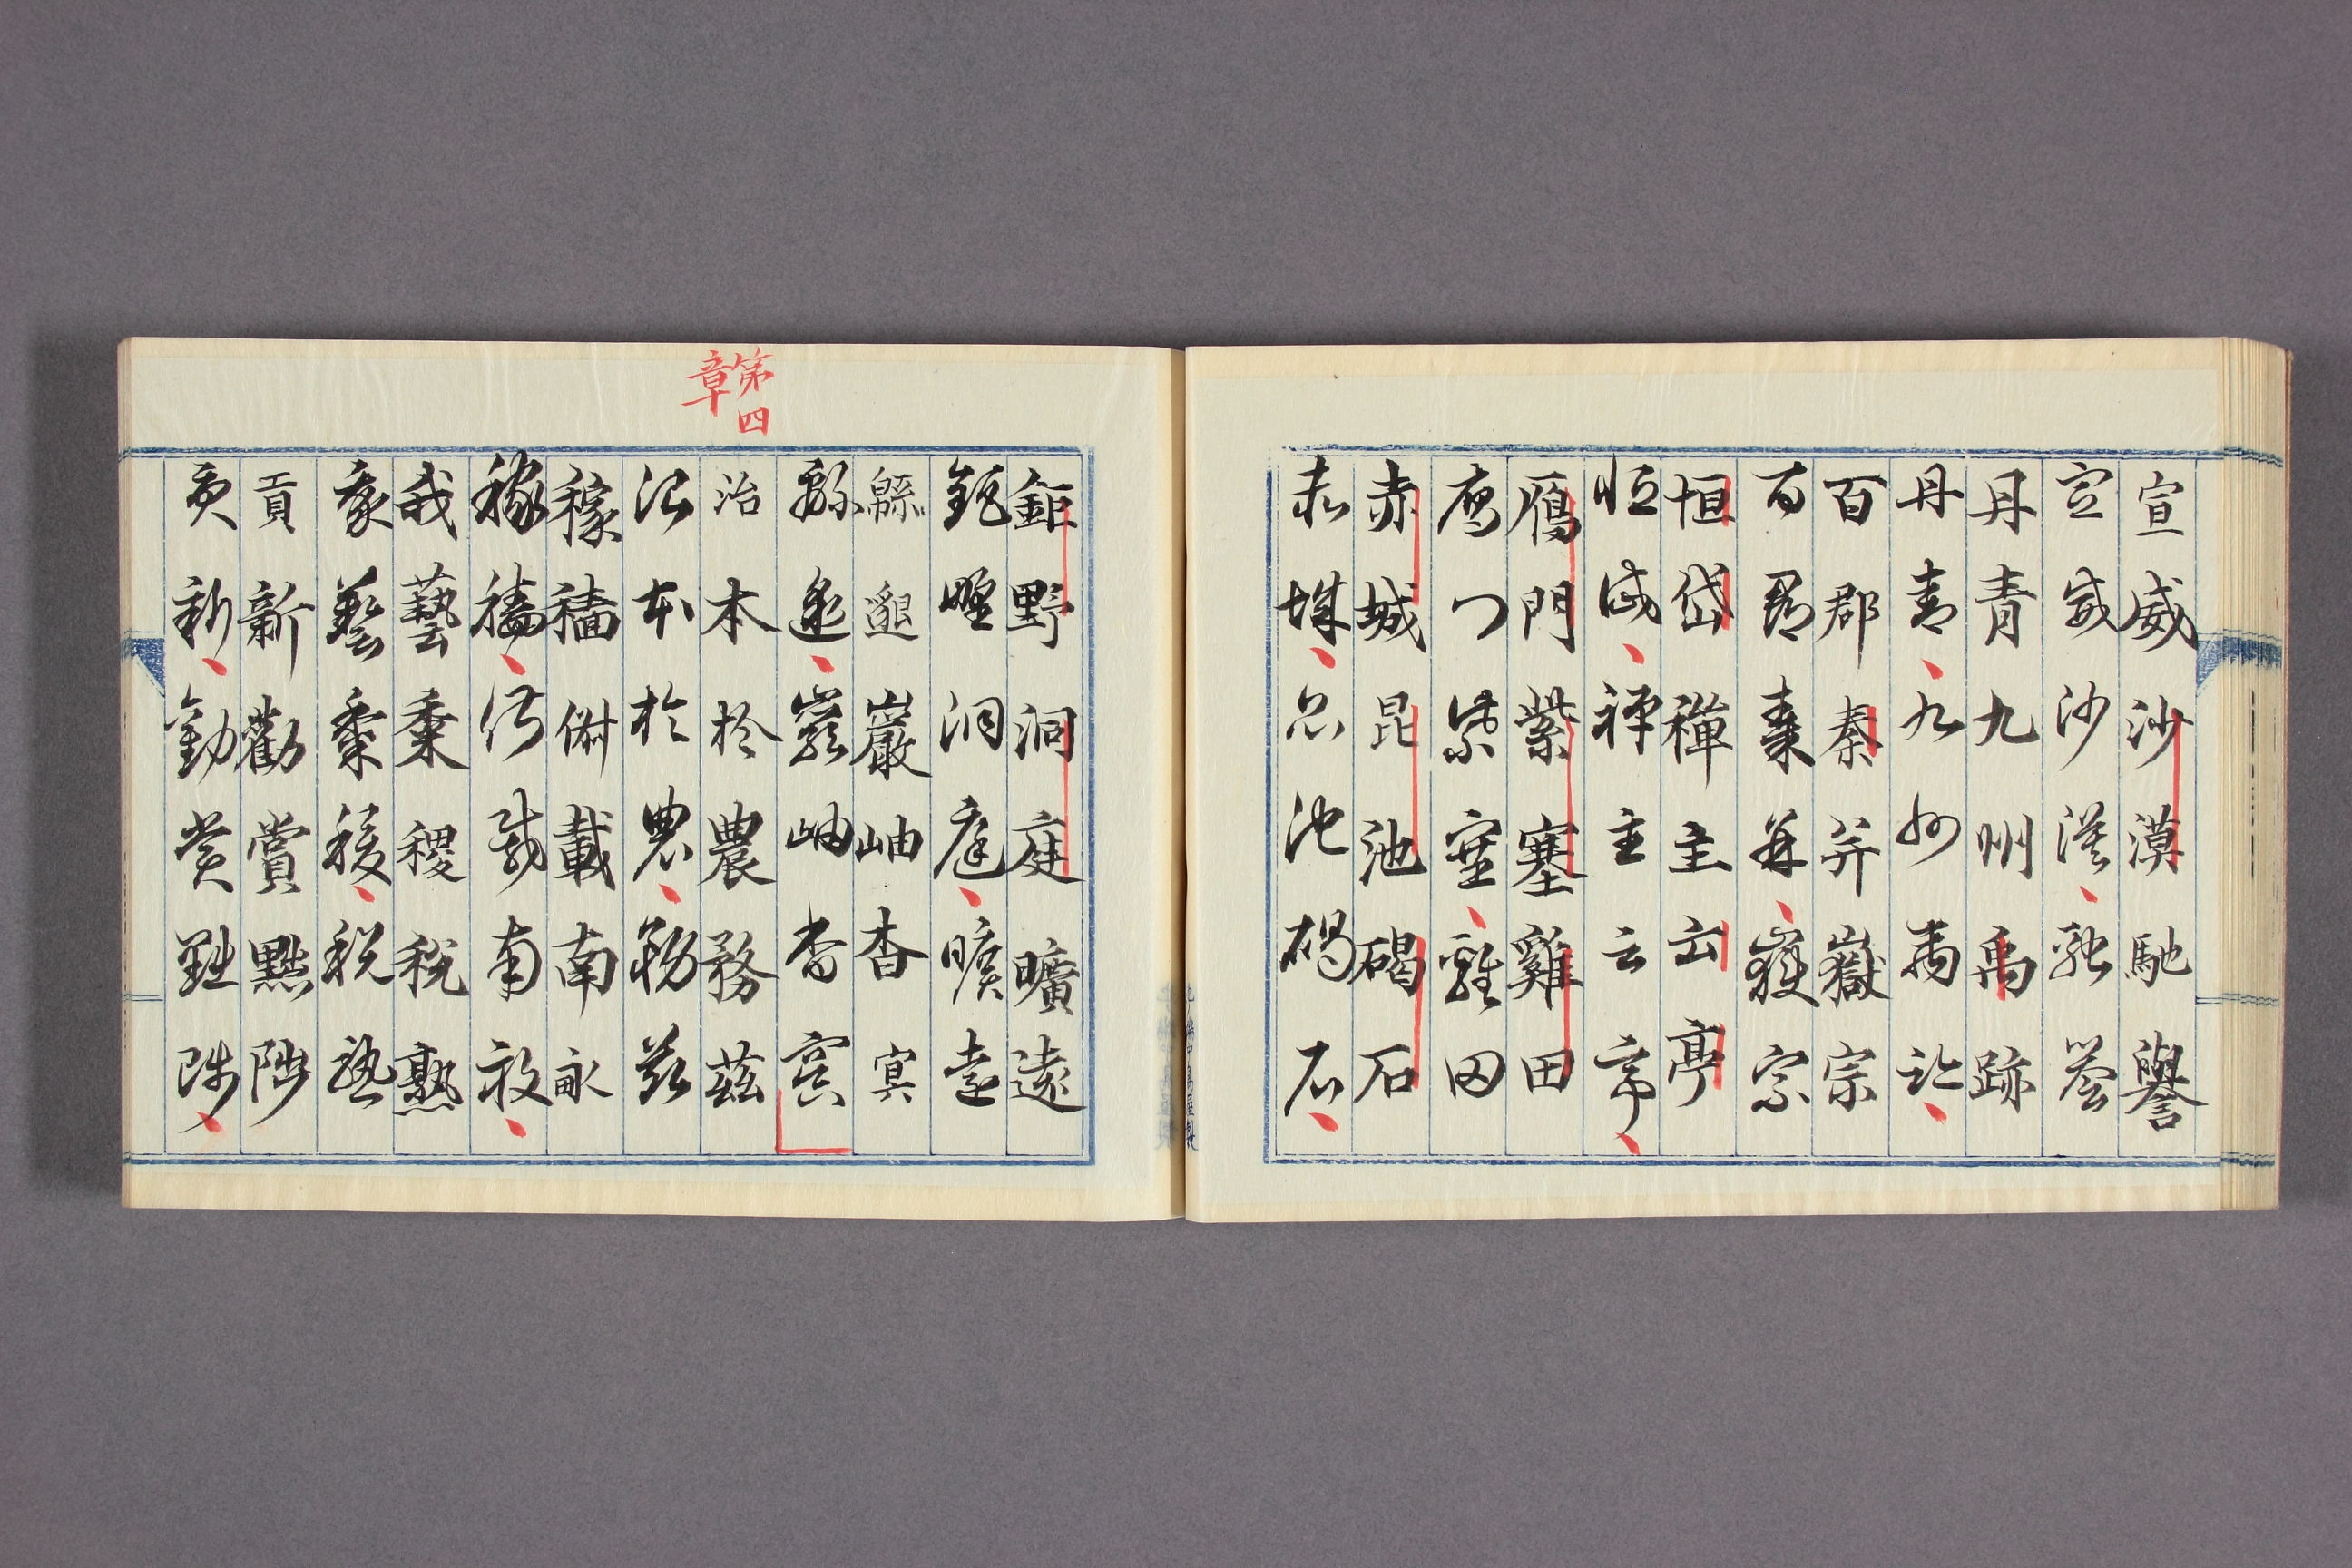 宣威沙漠馳譽
宣威沙漠馳譽
丹青九州禹跡
丹青九州禹跡
百郡秦并嶽宗
百郡秦并嶽宗
恒岱禪主云亭
恒岱禪主云亭
鴈門紫塞雞田
鴈門紫塞雞田
赤城昆池碣石
赤城昆池碣石
鉅野洞庭曠遠
鉅野洞庭曠遠
緜邈巖岫杳冥
緜邈巖岫杳冥
第四
章
治本於農務茲
治本於農務茲
稼穡俶載南畝
稼穡俶載南畝
我藝黍稷稅熟
我藝黍稷稅熟
貢新勸賞黜陟
貢新勸賞黜陟